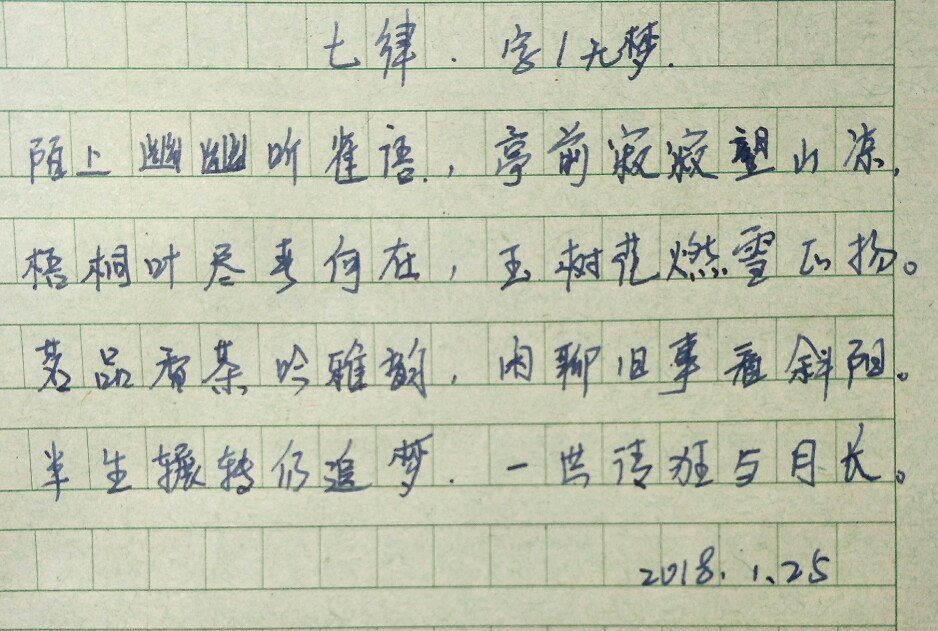 七律·字1无梦.
陌上幽幽听雀语,亭前寂寂望山凉,
梧桐叶尽春何在,玉树花燃雪正扬。
茗品香茶吟雅韵,闲聊旧事看斜阳。
半生辗转仍追梦.一世清狂与月长。
2018.1.25